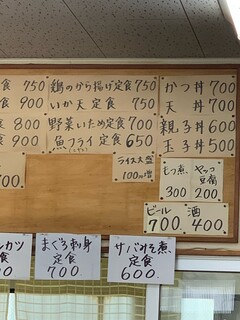 食 750
食 900
食 800
食 900
700
鶏のから揚げ定食 750
いか天定食 750
野菜いため定食 700
魚フライ定食 650
ライス大盛
100円増
かつ丼 700
天丼 700
親子丼 600
玉子丼 500
もつ煮
300
ヤッコ
豆腐
200
ビール
700
酒
400
カツ
まぐろ刺身
定食
700
サバみそ煮
定食
600